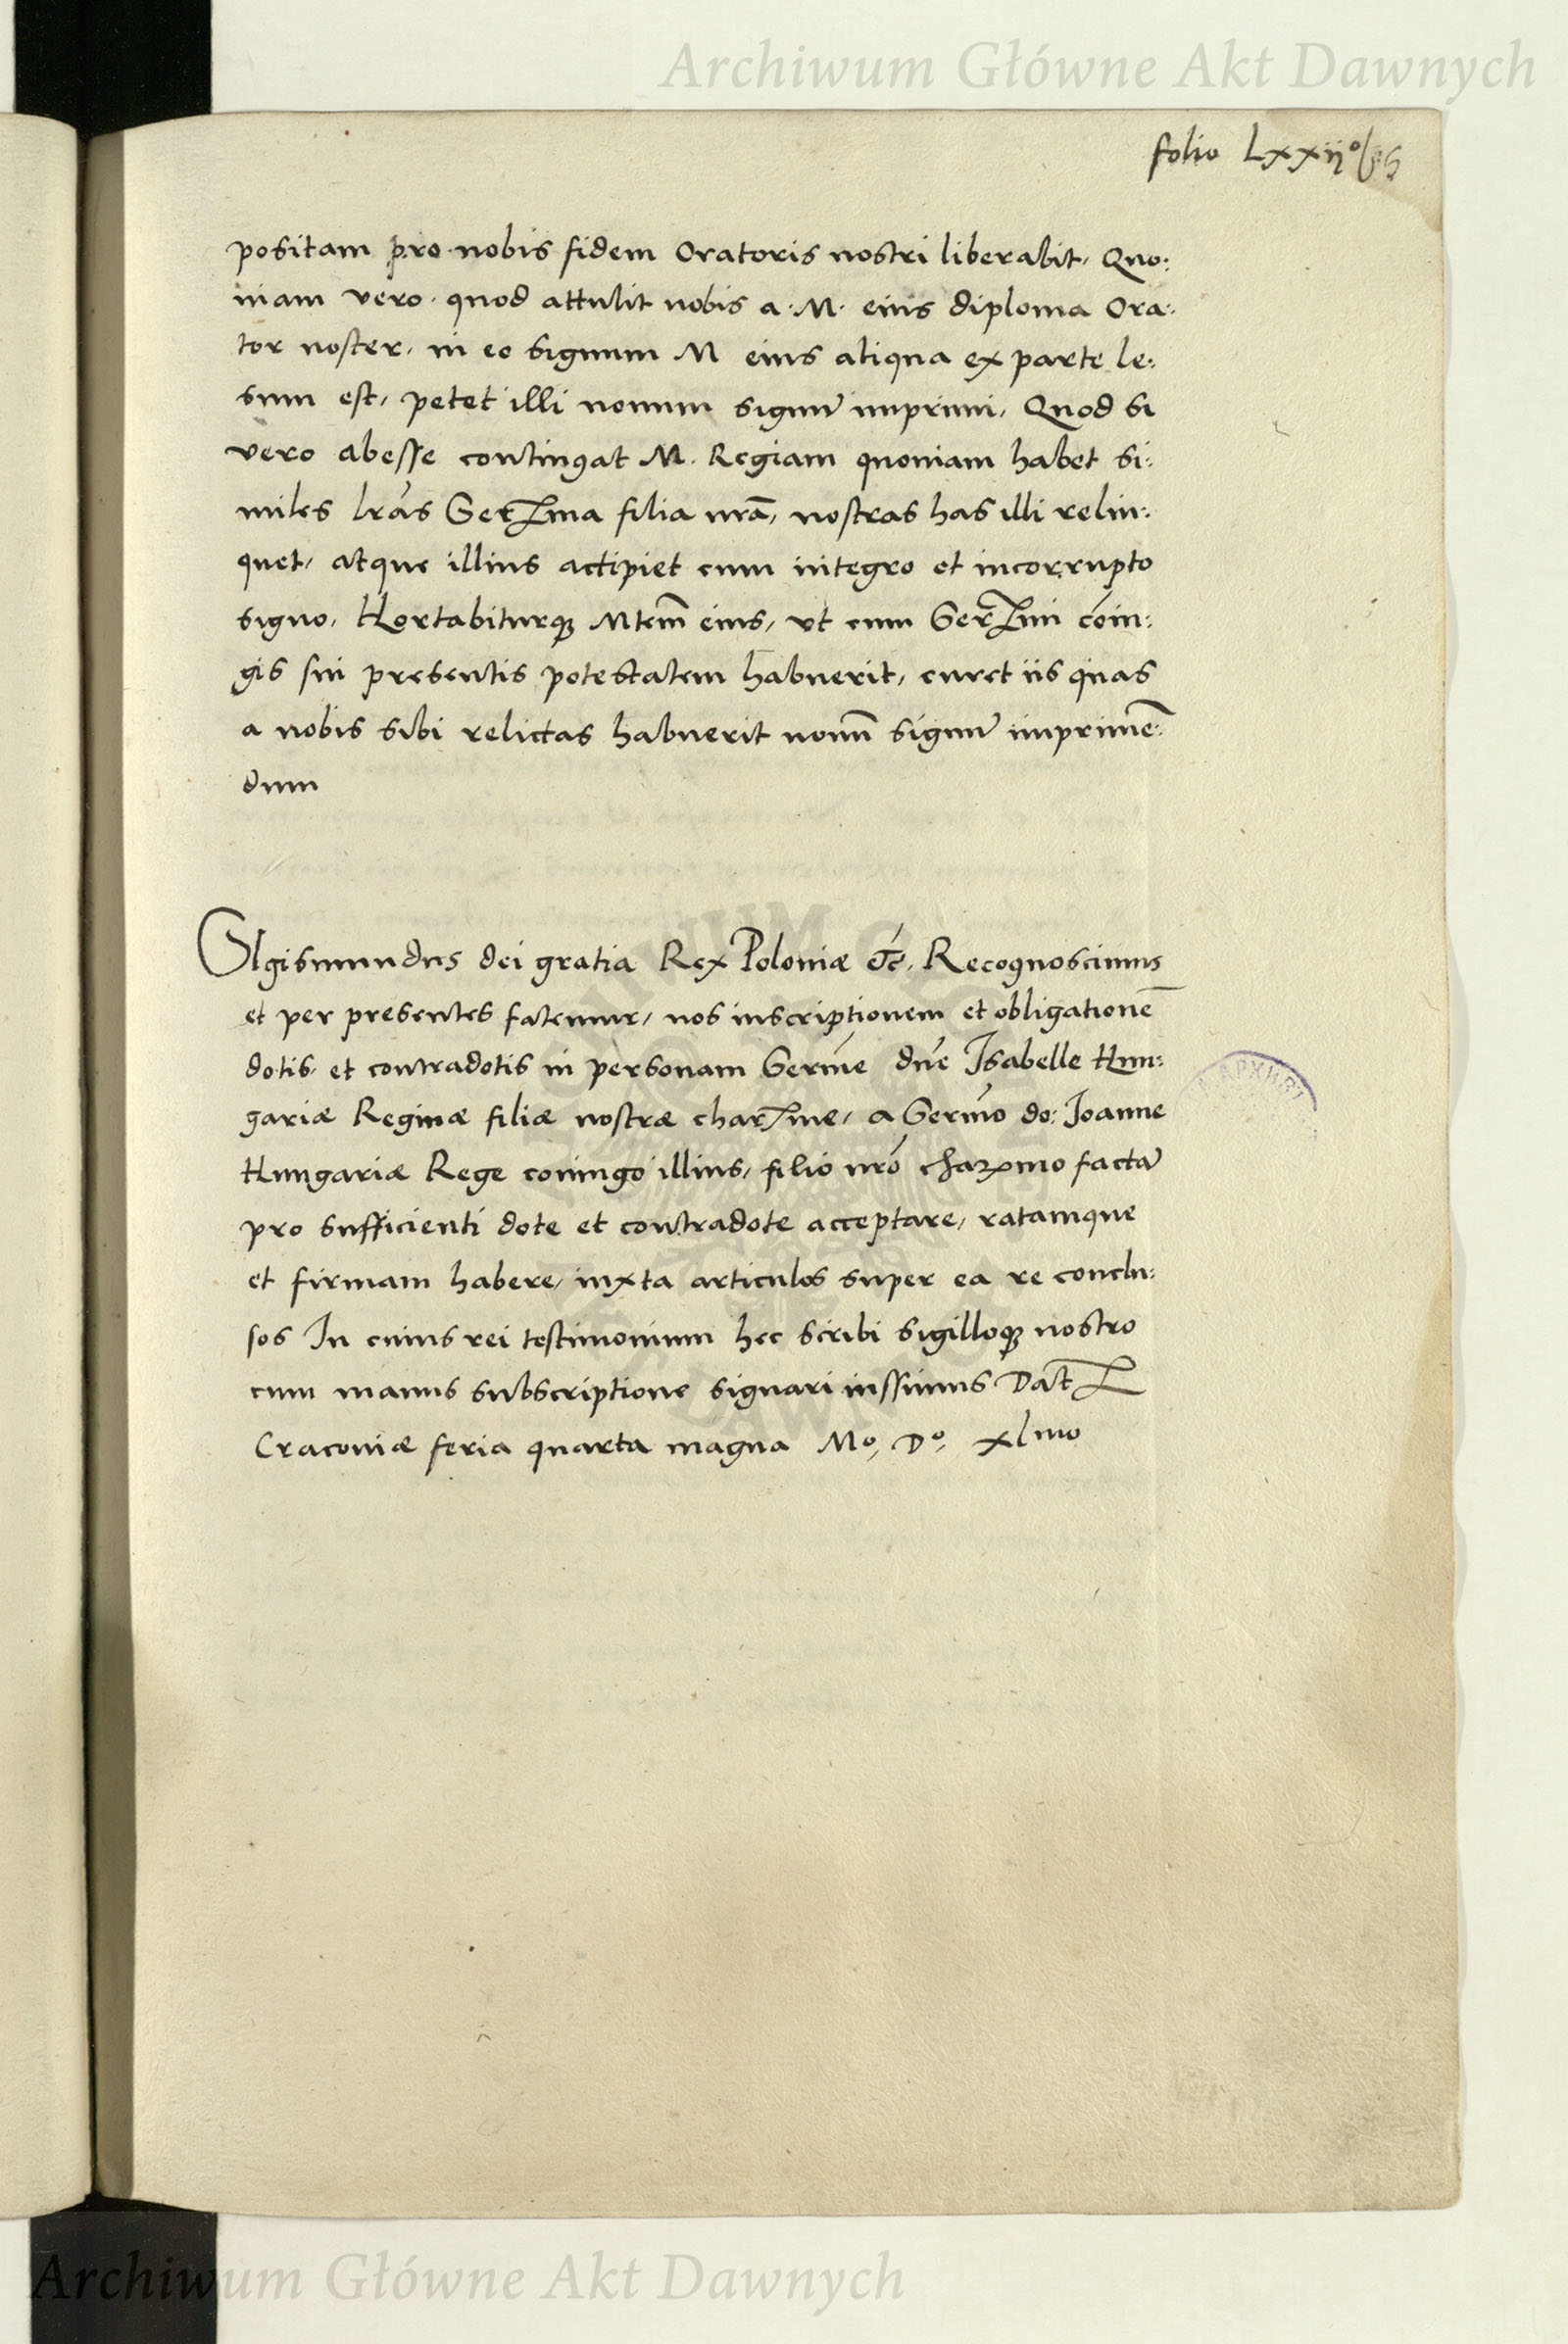 Archiwum Główne Akt Dawnych
folio Lxxijº
positam pro nobis fidem Oratoris nostri liberabit, Quo:
niam vero quod attulit nobis a. M. eius diploma Ora:
tor noster, in eo signum M eius aliqua ex parte le:
sum est, petet illi nouum signū imprimi, Quod si
vero abesse contingat M. Regiam quoniam habet si:
miles lrās Serma filia nrā, nostras has illi relin:
quet, atque illius accipiet cum integro et incorrupto
signo, Hortabiturq; Mtem̄ eius, vt cum Sermi cōiu:
gis sui presentis potestatem habuerit, curet iis quas
a nobis sibi relictas habuerit nouū signū imprimē:
dum
SIgismundus dei gratia Rex Poloniæ etc. Recognoscimus
et per presentes fatemur, nos inscriptionem et obligationē
dotis et contradotis in personam Sermē dnē Isabelle Hun:
gariæ Reginæ filiæ nostræ charme, a Sermō do: Joanne
Hungariæ Rege coniugo illius, filio nrō charmo factā
pro sufficienti dote et contradote acceptare, ratamque
et firmam habere, iuxta articulos super ea re conclu:
sos In cuius rei testimonium hec scribi sigilloq; nostro
cum manus subscriptione signari iussimus Dat
Cracoviæ feria quarta magna Mº, Dº, xlmo
Archiwum Główne Akt Dawnych